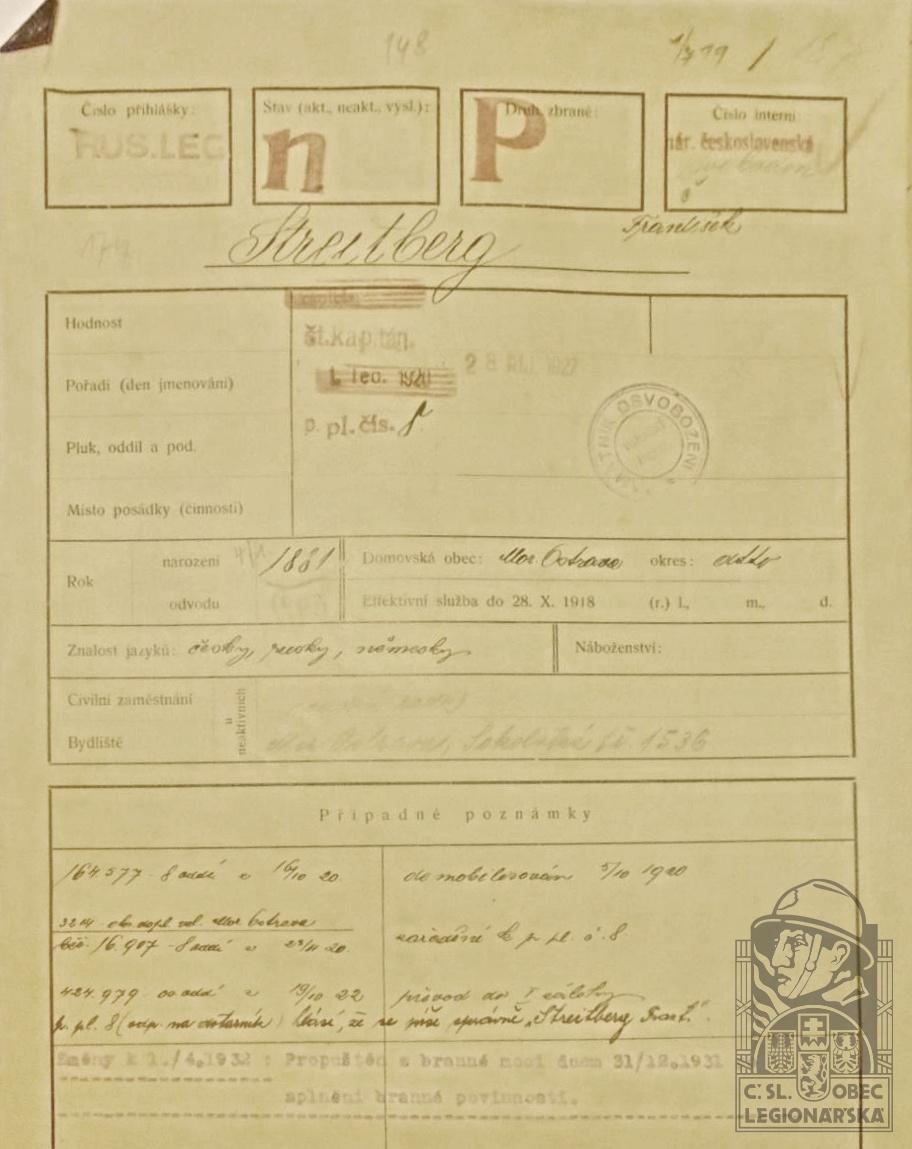 148
1/7 19 /
Číslo přihlášky:
RUS.LEG
Stav (akt., neakt., vysl.):
n
Druh zbraně:
P
Číslo interní
nár. československá
174
Streitberg František
Hodnost
št.kapitán.
Pořadí (den jmenování)
28 1927
Pluk, oddíl a pod.
p. pl. čís. 8
OSVOBOZENÍ
Místo posádky (činnosti)
Rok
narození 4/1 1881
odvodu
Domovská obec: Mor. Ostrava okres: detto
Effektivní služba do 28. X. 1918 (r.) l., m., d.
Znalost jazyků: česky, rusky, německy
Náboženství:
Civilní zaměstnání
u neaktivních
Bydliště
Mor. Ostrava, Sokolská tř. 1536
Případné poznámky
164.577 8 odd z 16/10 20 demobilisován 5/10 1920
3214 Mor. Ostrava
16.907 - 8 odd z 23/11 20 zařadění k p. pl. č. 8
424.979 z 19/10 22 převod do I zálohy
p. pl. 8 (odp. na dotazník) hlásí, že se píše správně "Streitberg Frant."
Změny k 1./4.1932 : Propuštěn z branné moci dnem 31/12.1931
splnění branné povinnosti.
Č.SL. OBEC
LEGIONÁŘSKÁ